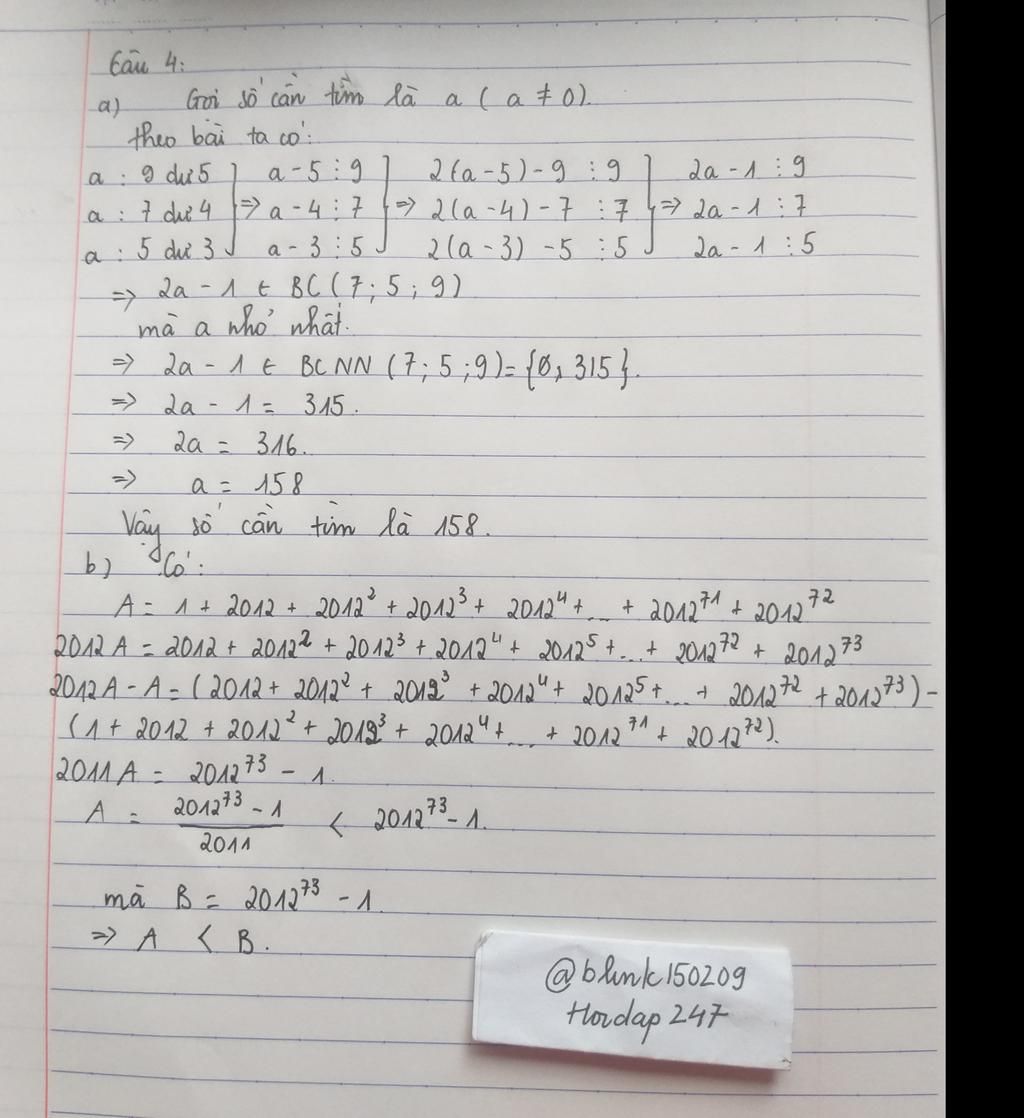 Câu 4:
a) Gọi số cần tìm là a ( a ≠ 0).
theo bài ta có:
a : 9 dư 5 } a - 5 ⋮ 9 } 2(a-5) - 9 ⋮ 9 } 2a - 1 ⋮ 9
a : 7 dư 4 } => a - 4 ⋮ 7 } => 2(a-4) - 7 ⋮ 7 } => 2a - 1 ⋮ 7
a : 5 dư 3 } a - 3 ⋮ 5 } 2(a-3) - 5 ⋮ 5 } 2a - 1 ⋮ 5
=> 2a - 1 ∈ BC(7; 5; 9)
mà a nhỏ nhất.
=> 2a - 1 ∈ BCNN (7; 5; 9) = {0, 315}.
=> 2a - 1 = 315.
=> 2a = 316.
=> a = 158
Vậy số cần tìm là 158.
b) Có:
A = 1 + 2012 + 2012² + 2012³ + 2012⁴ + ... + 2012⁷¹ + 2012⁷²
2012A = 2012 + 2012² + 2012³ + 2012⁴ + 2012⁵ + ... + 2012⁷² + 2012⁷³
2012A - A = (2012 + 2012² + 2012³ + 2012⁴ + 2012⁵ + ... + 2012⁷² + 2012⁷³) -
(1 + 2012 + 2012² + 2012³ + 2012⁴ + ... + 2012⁷¹ + 2012⁷²).
2011A = 2012⁷³ - 1.
A = (2012⁷³ - 1)/2011 < 2012⁷³ - 1.
mà B = 2012⁷³ - 1
=> A < B.
@blink150209
Hoidap 247